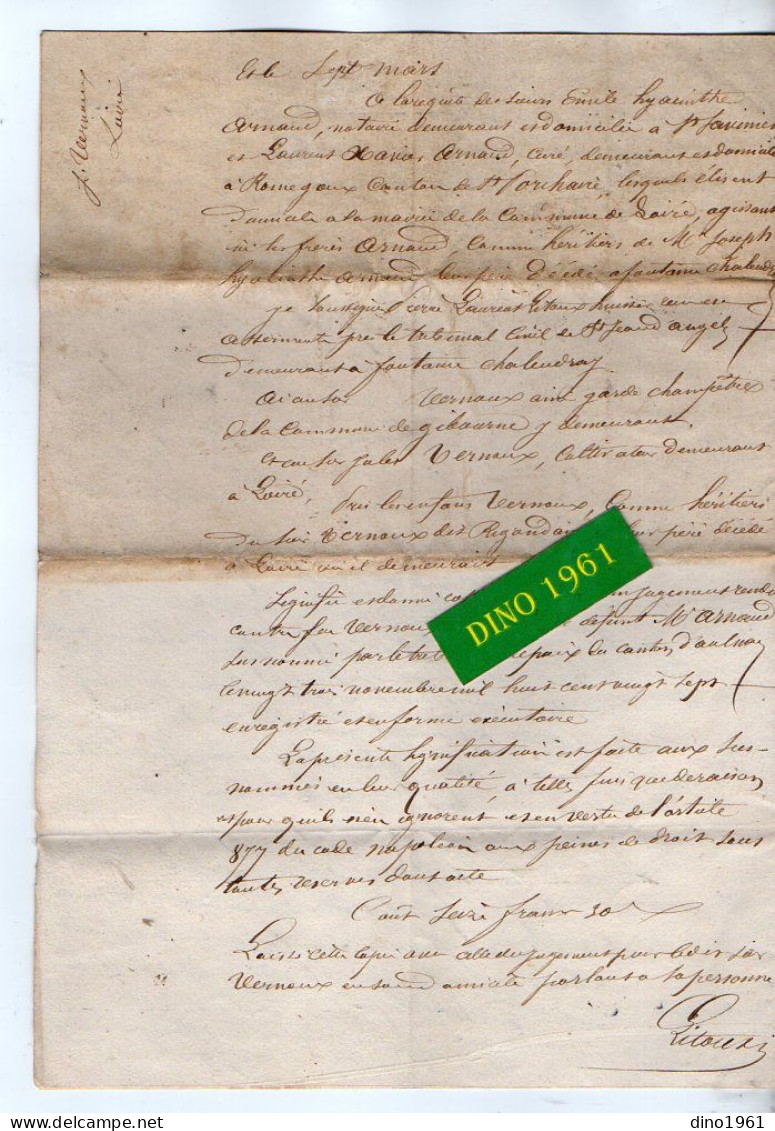 J. Vernoux
Loiré
Et le Sept mars
A la requête des sieurs Emile hyacinthe
Arnaud, notaire demeurant et domicilié à St Savinien
et Laurent Xavier Arnaud, curé, demeurant et domicilié
à Romegoux Canton de St Porchaire, lesquels élisent
Domicile a la mairie de la Commune de Loiré, agissant
les frères Arnaud, Comme héritiers de Mr Joseph
hyacinthe Arnaud leur père Décédé a fontaine Chalendray
je soussigné Pierre Laurent Litoux huissier
assermenté près le tribunal Civil de St Jean d'angely
Demeurant a fontaine chalendray
Ai au Sr Vernoux ainé garde champêtre
de la Commune de gibourne y demeurant,
et au Sr jules Vernoux, Cultivateur demeurant
à Loiré, Pris les enfans Vernoux, Comme héritiers
du Sieur Vernoux dit père décédé
à Loiré où il demeurait
Signifié et donné jugement rendu
contre feu Vernoux défunt Mr Arnaud
sus nommé par le paix du canton d'aulnay
le vingt trois novembre mil huit cent vingt sept
enregistré et en forme exécutoire
La présente Signification est faite aux Sus-
nommés en leur qualité, à telles fins que de raison
et pour qu'ils n'en ignorent et en vertu de l'article
877 du code napoléon aux peines de droit sous
toutes reserves dont acte
Cout Seize francs 30
Laissé cette copie avec celle du jugement pour le dit Sr
Vernoux en son domicile parlant a sa personne
Litoux
DINO 1961
delcampe.net
dino1961